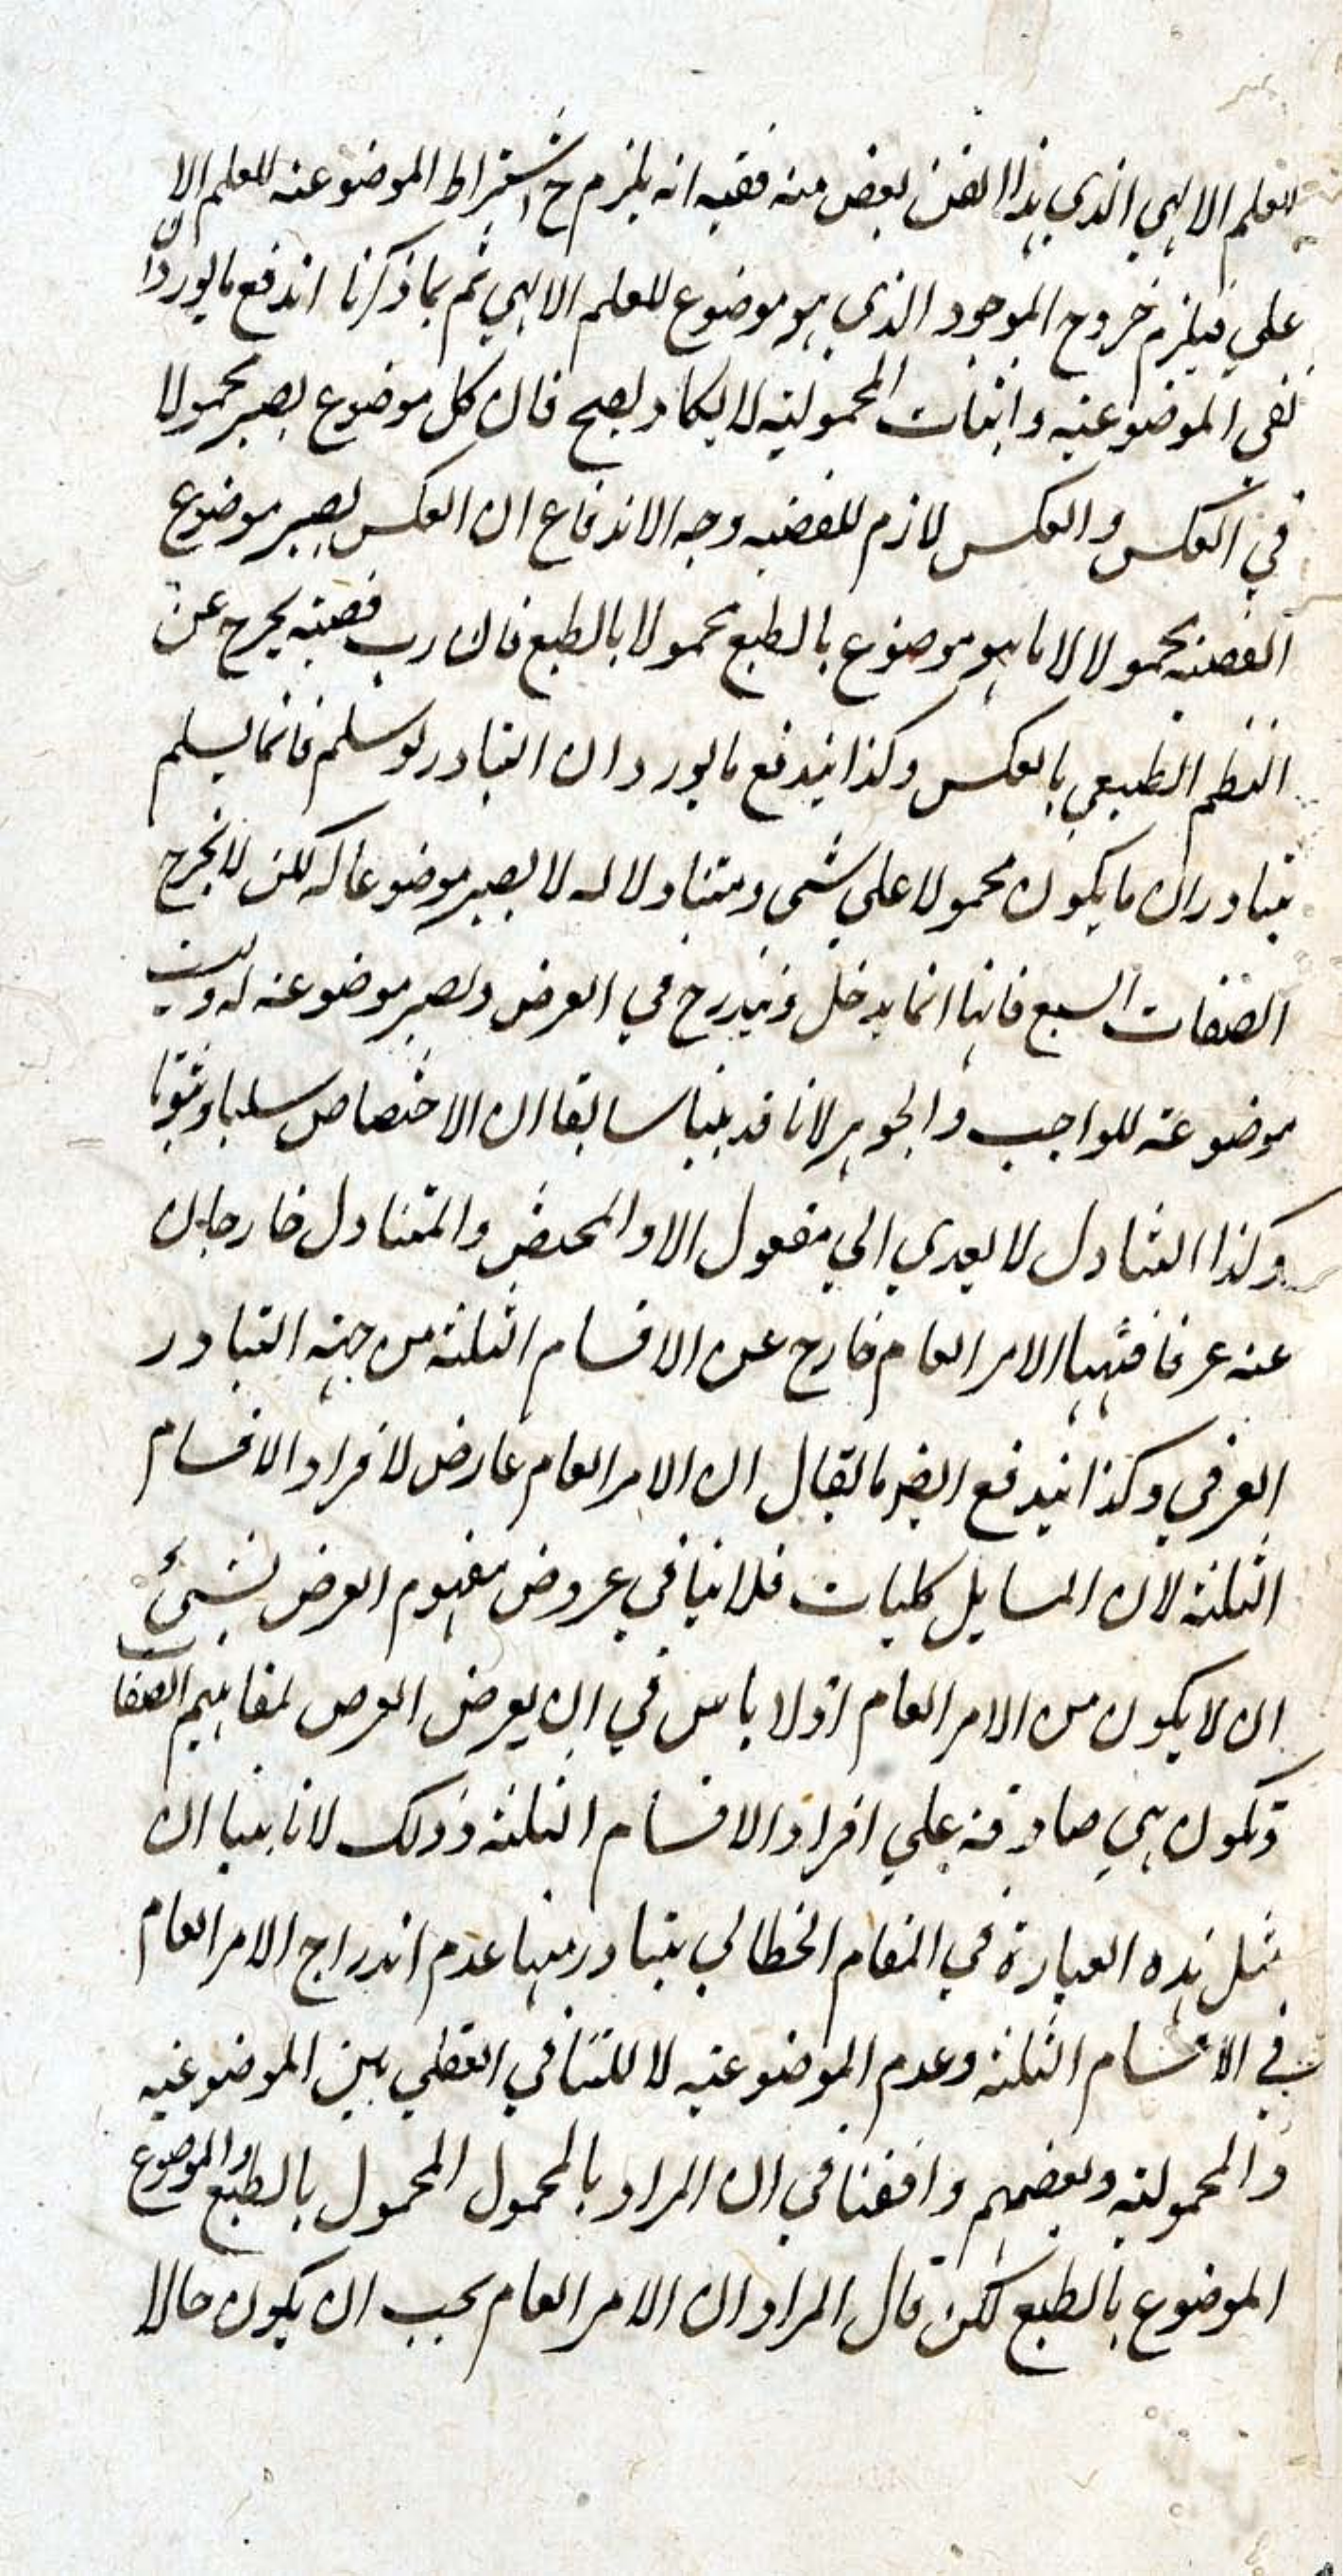 للعلم الالهي الذي هذا الفن بعض منه ففيه انه يلزم ح اشتراط الموضوعية للعلم الا
علي فيلزم خروج الموجود الذي هو موضوع للعلم الالهي ثم بما ذكرنا اندفع ما يورد ان
نفي الموضوعية واثبات المحمولية لا يكاد يصح فان كل موضوع يصير محمولا
في العكس والعكس لازم للقضية وجه الاندفاع ان العكس يصير موضوع
القضية محمولا لا ما هو موضوع بالطبع محمولا بالطبع فان رب قضية يخرج عن
النظم الطبيعي بالعكس وكذا يندفع ما يورد ان التبادر لو سلم فانما يسلم
تبادر ان ما يكون محمولا علي شي ومتناولا له لا يصير موضوعا له لكن لا يخرج
الصفات السبع فانها انما يدخل ويندرج في العرض ويصير موضوعة له وليست
موضوعة للواجب والجوهر لانا قد بينا سابقا ان الاختصاص سلبا وثبوتا
وكذا التناول لا يعدي الي مفعول الا والمختص والمتناول خارجان
عنه عرفا فههنا الامر العام خارج عن الاقسام الثلثة من جهة التبادر
العرفي وكذا يندفع ايضا ما يقال ان الامر العام عارض لافراد الاقسام
الثلثة لان المسايل كليات فلا ينافي عروض مفهوم العرض لشيئ
ان لا يكون من الامر العام اذ لا باس في ان يعرض العرض لمفاهيم الصفات
وتكون هي صادقة علي افراد الاقسام الثلثة وذلك لانا بينا ان
مثل هذه العبارة في المقام الخطابي يتبادر منها عدم اندراج الامر العام
في الاقسام الثلثة وعدم الموضوعية لا للتنافي القطعي بين الموضوعية
والمحمولية وبعضهم وافقنا في ان المراد بالمحمول المحمول بالطبع والموضوع
الموضوع بالطبع لكن قال المراد ان الامر العام يجب ان يكون حالا